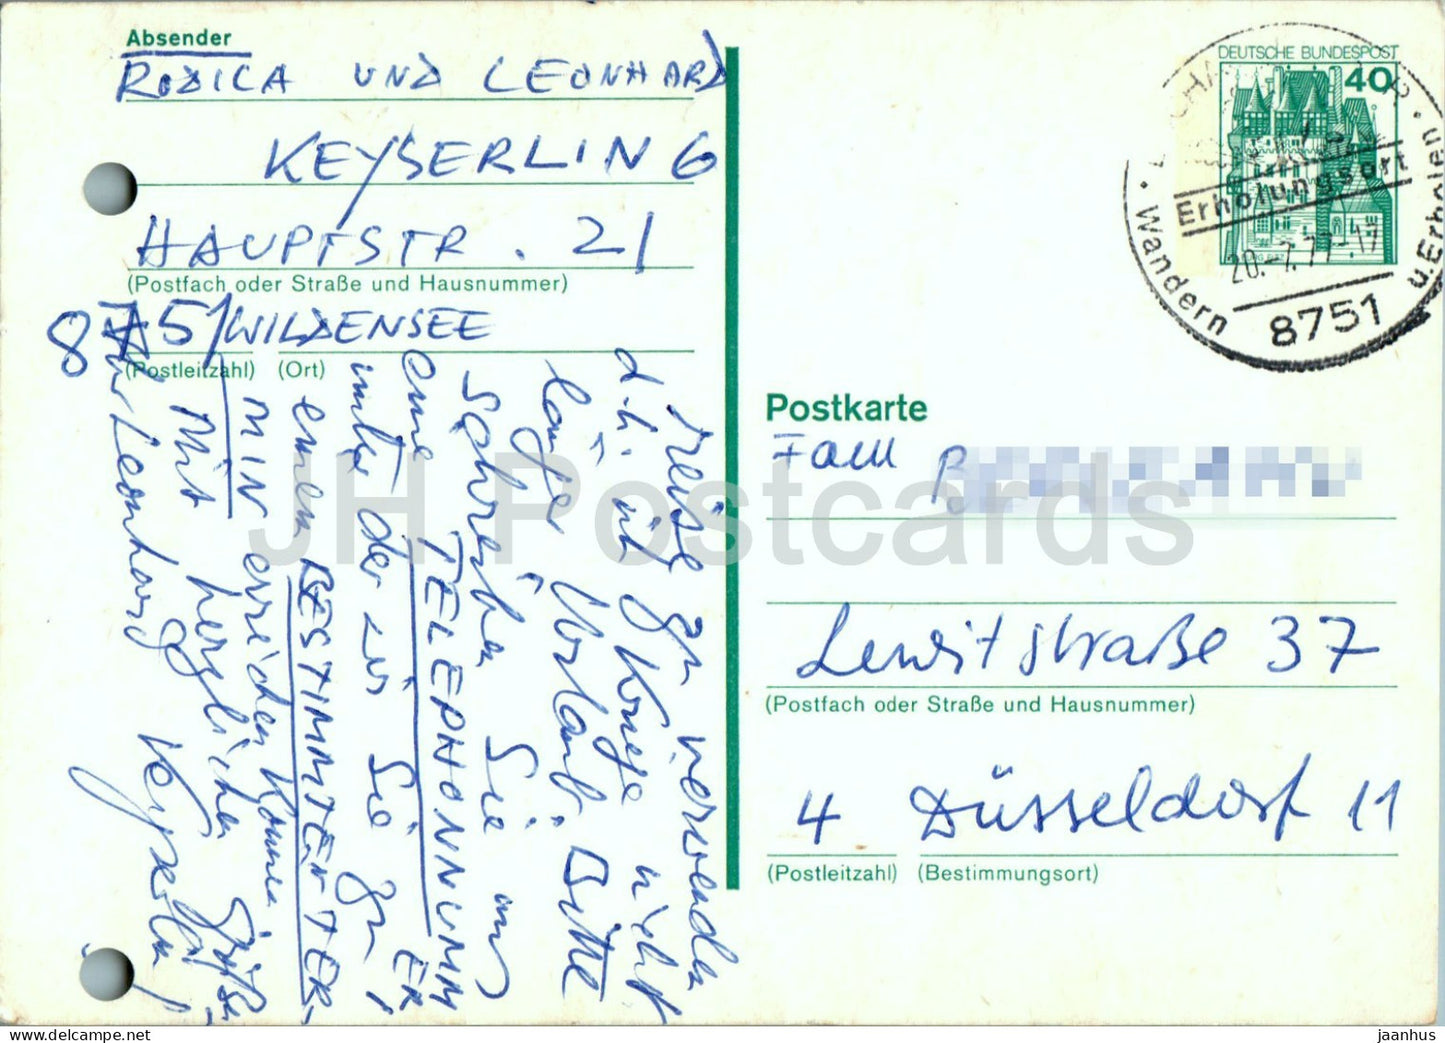 Absender
RODICA UND LEONHARD
KEYSERLING
HAUPTSTR. 21
(Postfach oder Straße und Hausnummer)
8751/WILDENSEE
(Postleitzahl) (Ort)
Reise zu verwenden
d.h. ich kriege nicht
länger Urlaub. Bitte
schreiben Sie uns
eine TELEPHONNUMMER
unter der wir Sie zu
einem BESTIMMTEN TER-
MIN erreichen können
Mit herzlichen Grüßen
Ihr Leonhard Keyserling
DEUTSCHE BUNDESPOST
40
Erholungsort
20.-7.77.17
Wandern u. Erholen
8751
Postkarte
Fam
Lewitstraße 37
(Postfach oder Straße und Hausnummer)
4 Düsseldorf 11
(Postleitzahl) (Bestimmungsort)
JH Postcards
jaanhus | ecwid.com